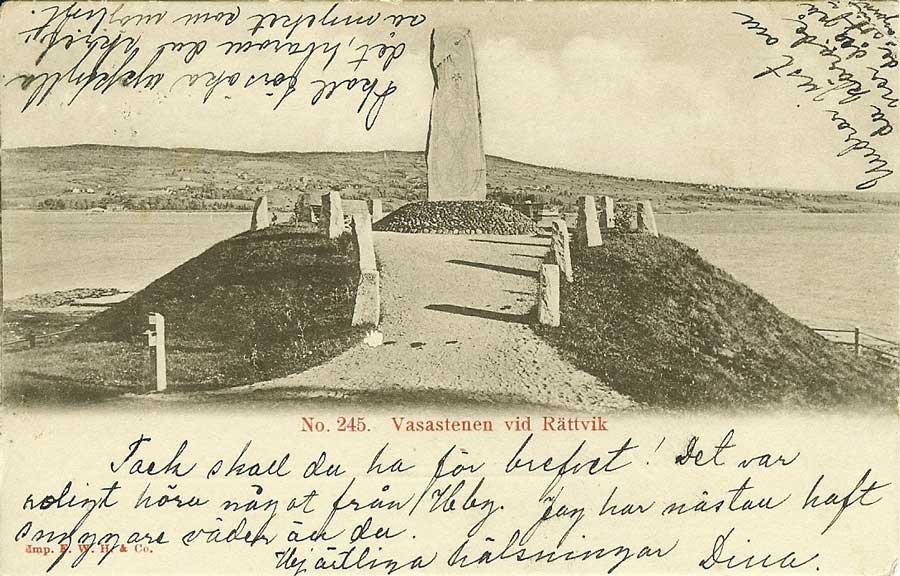 No. 245. Vasastenen vid Rättvik
Tack skall du ha för brefvet! Det var
roligt höra något från Heby. Jag har nästan haft
snyggare väder än du.
Hjärtliga hälsningar Dina.
Imp. F. W. H. & Co.
Skall försöka uppfylla
det, hvarom du skref
så mycket som möjligt.
Undrar just om
du klarade